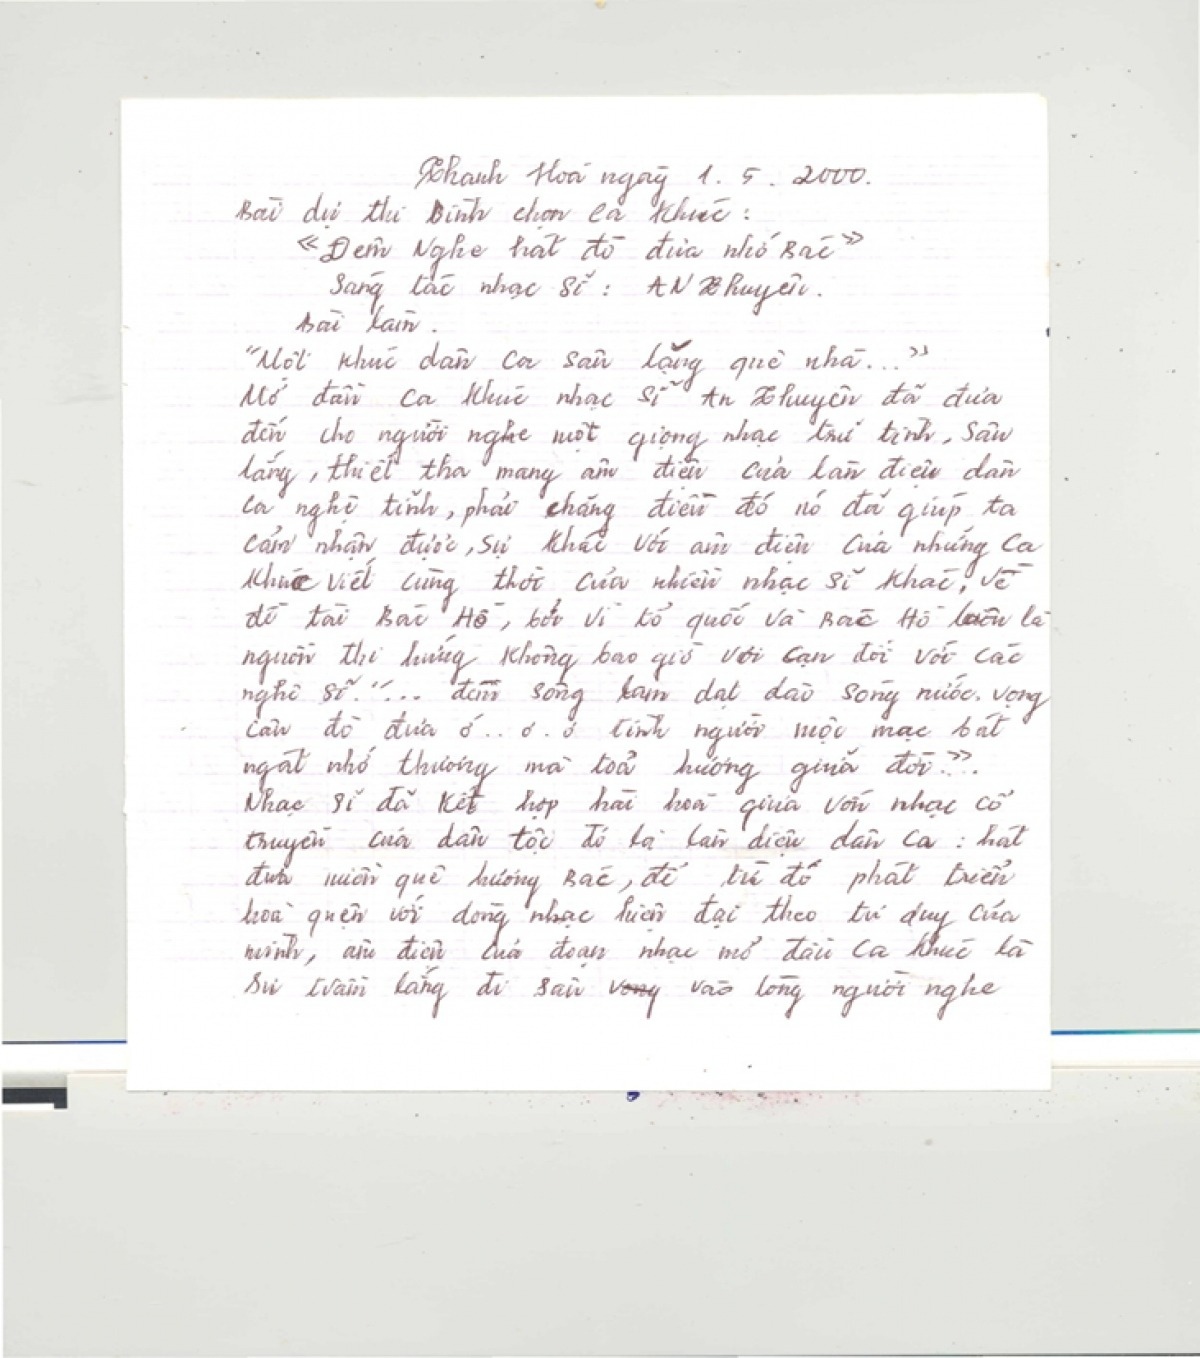 Thanh Hoá ngày 1. 5. 2000.
Bài dự thi Bình chọn ca khúc :
«Đêm Nghe hát đò đưa nhớ Bác»
Sáng tác nhạc sĩ : AN Thuyên.
Bài làm.
"Một khúc dân ca sâu lắng quê nhà..."
Mở đầu ca khúc nhạc sĩ An Thuyên đã đưa
đến cho người nghe một giọng nhạc trữ tình, sâu
lắng, thiết tha mang âm điệu của làn điệu dân
ca nghệ tĩnh, phải chăng điều đó nó đã giúp ta
cảm nhận được, sự khác với âm điệu của những ca
khúc viết cùng thời của nhiều nhạc sĩ khác, về
đề tài Bác Hồ, bởi vì tổ quốc và Bác Hồ luôn là
nguồn thi hứng không bao giờ vơi cạn đối với các
nghệ sĩ. "... đêm sông lam dạt dào sóng nước. vọng
câu đò đưa ớ.. ơ. ơ tình người mộc mạc bát
ngát nhớ thương mà toả hương giữa đời...".
Nhạc sĩ đã kết hợp hài hoà giữa vốn nhạc cổ
truyền của dân tộc đó là làn điệu dân ca : hát
đưa miền quê hương Bác, để từ đó phát triển
hoà quện với dòng nhạc hiện đại theo tư duy của
mình, âm điệu của đoạn nhạc mở đầu ca khúc là
sự trầm lắng đi sâu vào lòng người nghe